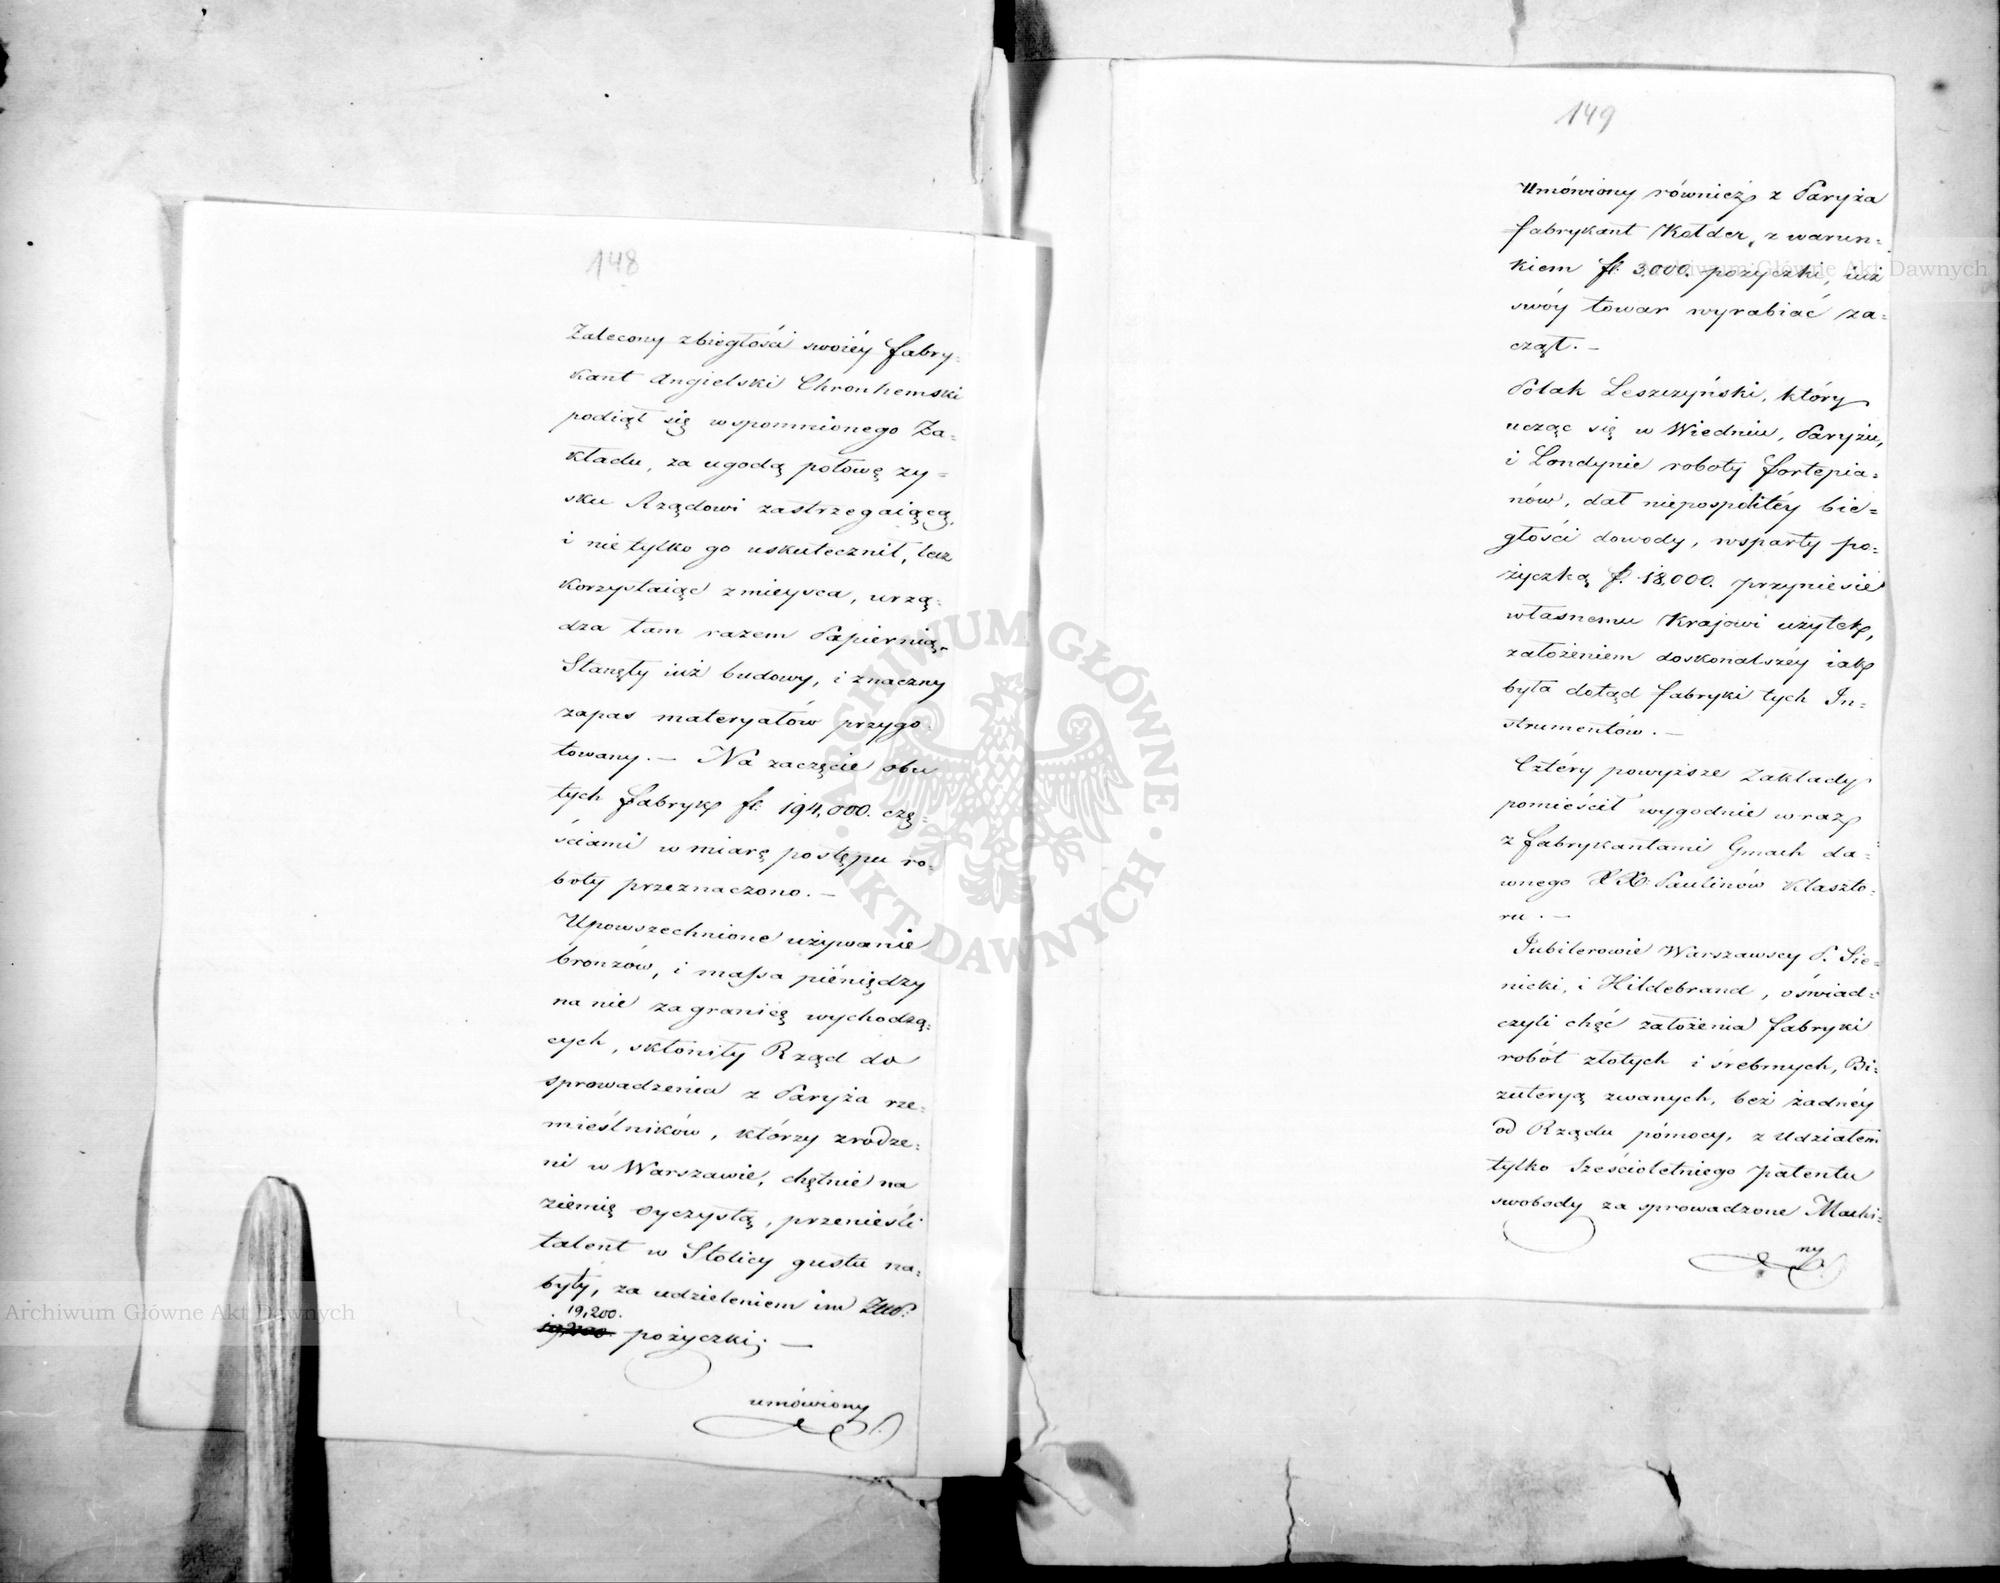 148
Zalecony zbiegłości swoiéy fabry-
kant Angielski Chronhemski
podiął się wspomnionego Za-
kładu, za ugodą połowę zy-
sku Rządowi zastrzegaiącą,
i nie tylko go uskutecznił, lecz
korzystaiąc z mieysca, urzą-
dza tam razem Papiernią.
Stanęły iuż budowy, i znaczny
zapas materyałów przygo-
towany. — Na zaczęcie obu
tych fabryk fl. 194,000. czę-
ściami w miarę postępu ro-
boty przeznaczono. —
Upowszechnione używanie
bronzów, i massa piéniędzy
na nie za granicę wychodzą-
cych, skłoniły Rząd do
sprowadzenia z Paryża rze-
mieślników, którzy zrodze-
ni w Warszawie, chętnie na
ziemię oyczystą, przenieśli
talent w Stolicy gustu na-
byty, za udzieleniem im Złłp.
19,200.
pożyczki; —
umówiony
149
Umówiony również z Paryża
fabrykant Kolder, z warun-
kiem fl. 3,000. pożyczki, iuż
swóy towar wyrabiać za-
czął. —
Polak Leszczyński, który
ucząc się w Wiedniu, Paryżu,
i Londynie roboty fortepia-
nów, dał niepospolitéy bie-
głości dowody, wsparty po-
życzką fl. 18,000. przyniesie
własnemu Krajowi użytek,
założeniem doskonalszéy iak
była dotąd fabryki tych In-
strumentów. —
Cztéry powyższe Zakłady
pomieścił wygodnie wraz
z fabrykantami Gmach da-
wnego XX. Paulinów Klaszto-
ru. —
Jubilerowie Warszawscy P. Sie-
nicki, i Hildebrand, oświad-
czyli chęć założenia fabryki
robót złotych i srebrnych, Bi-
zuteryą zwanych, bez żadnéy
od Rządu pómocy, z udziałem
tylko Sześcioletniego patentu
swobody za sprowadzone Machi-
ny
ARCHIWUM GŁÓWNE AKT DAWNYCH
Archiwum Główne Akt Dawnych
Archiwum Główne Akt Dawnych